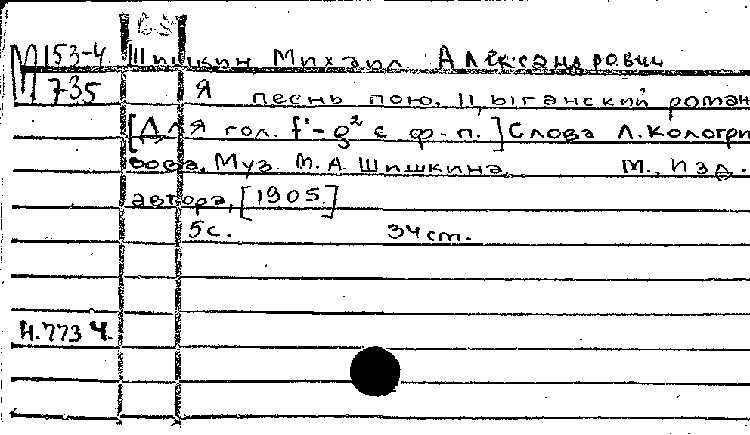 М 153-4 Шишкин Михаил Александрович
735 Я песнь пою. Цыганский роман
[Для гол. f¹-g² с ф-п.] Слова Л. Кологри
вова. Муз. М. А. Шишкина. М., изд.
автора, [1905]
5 с. 34 ст.
4.773 Ч.